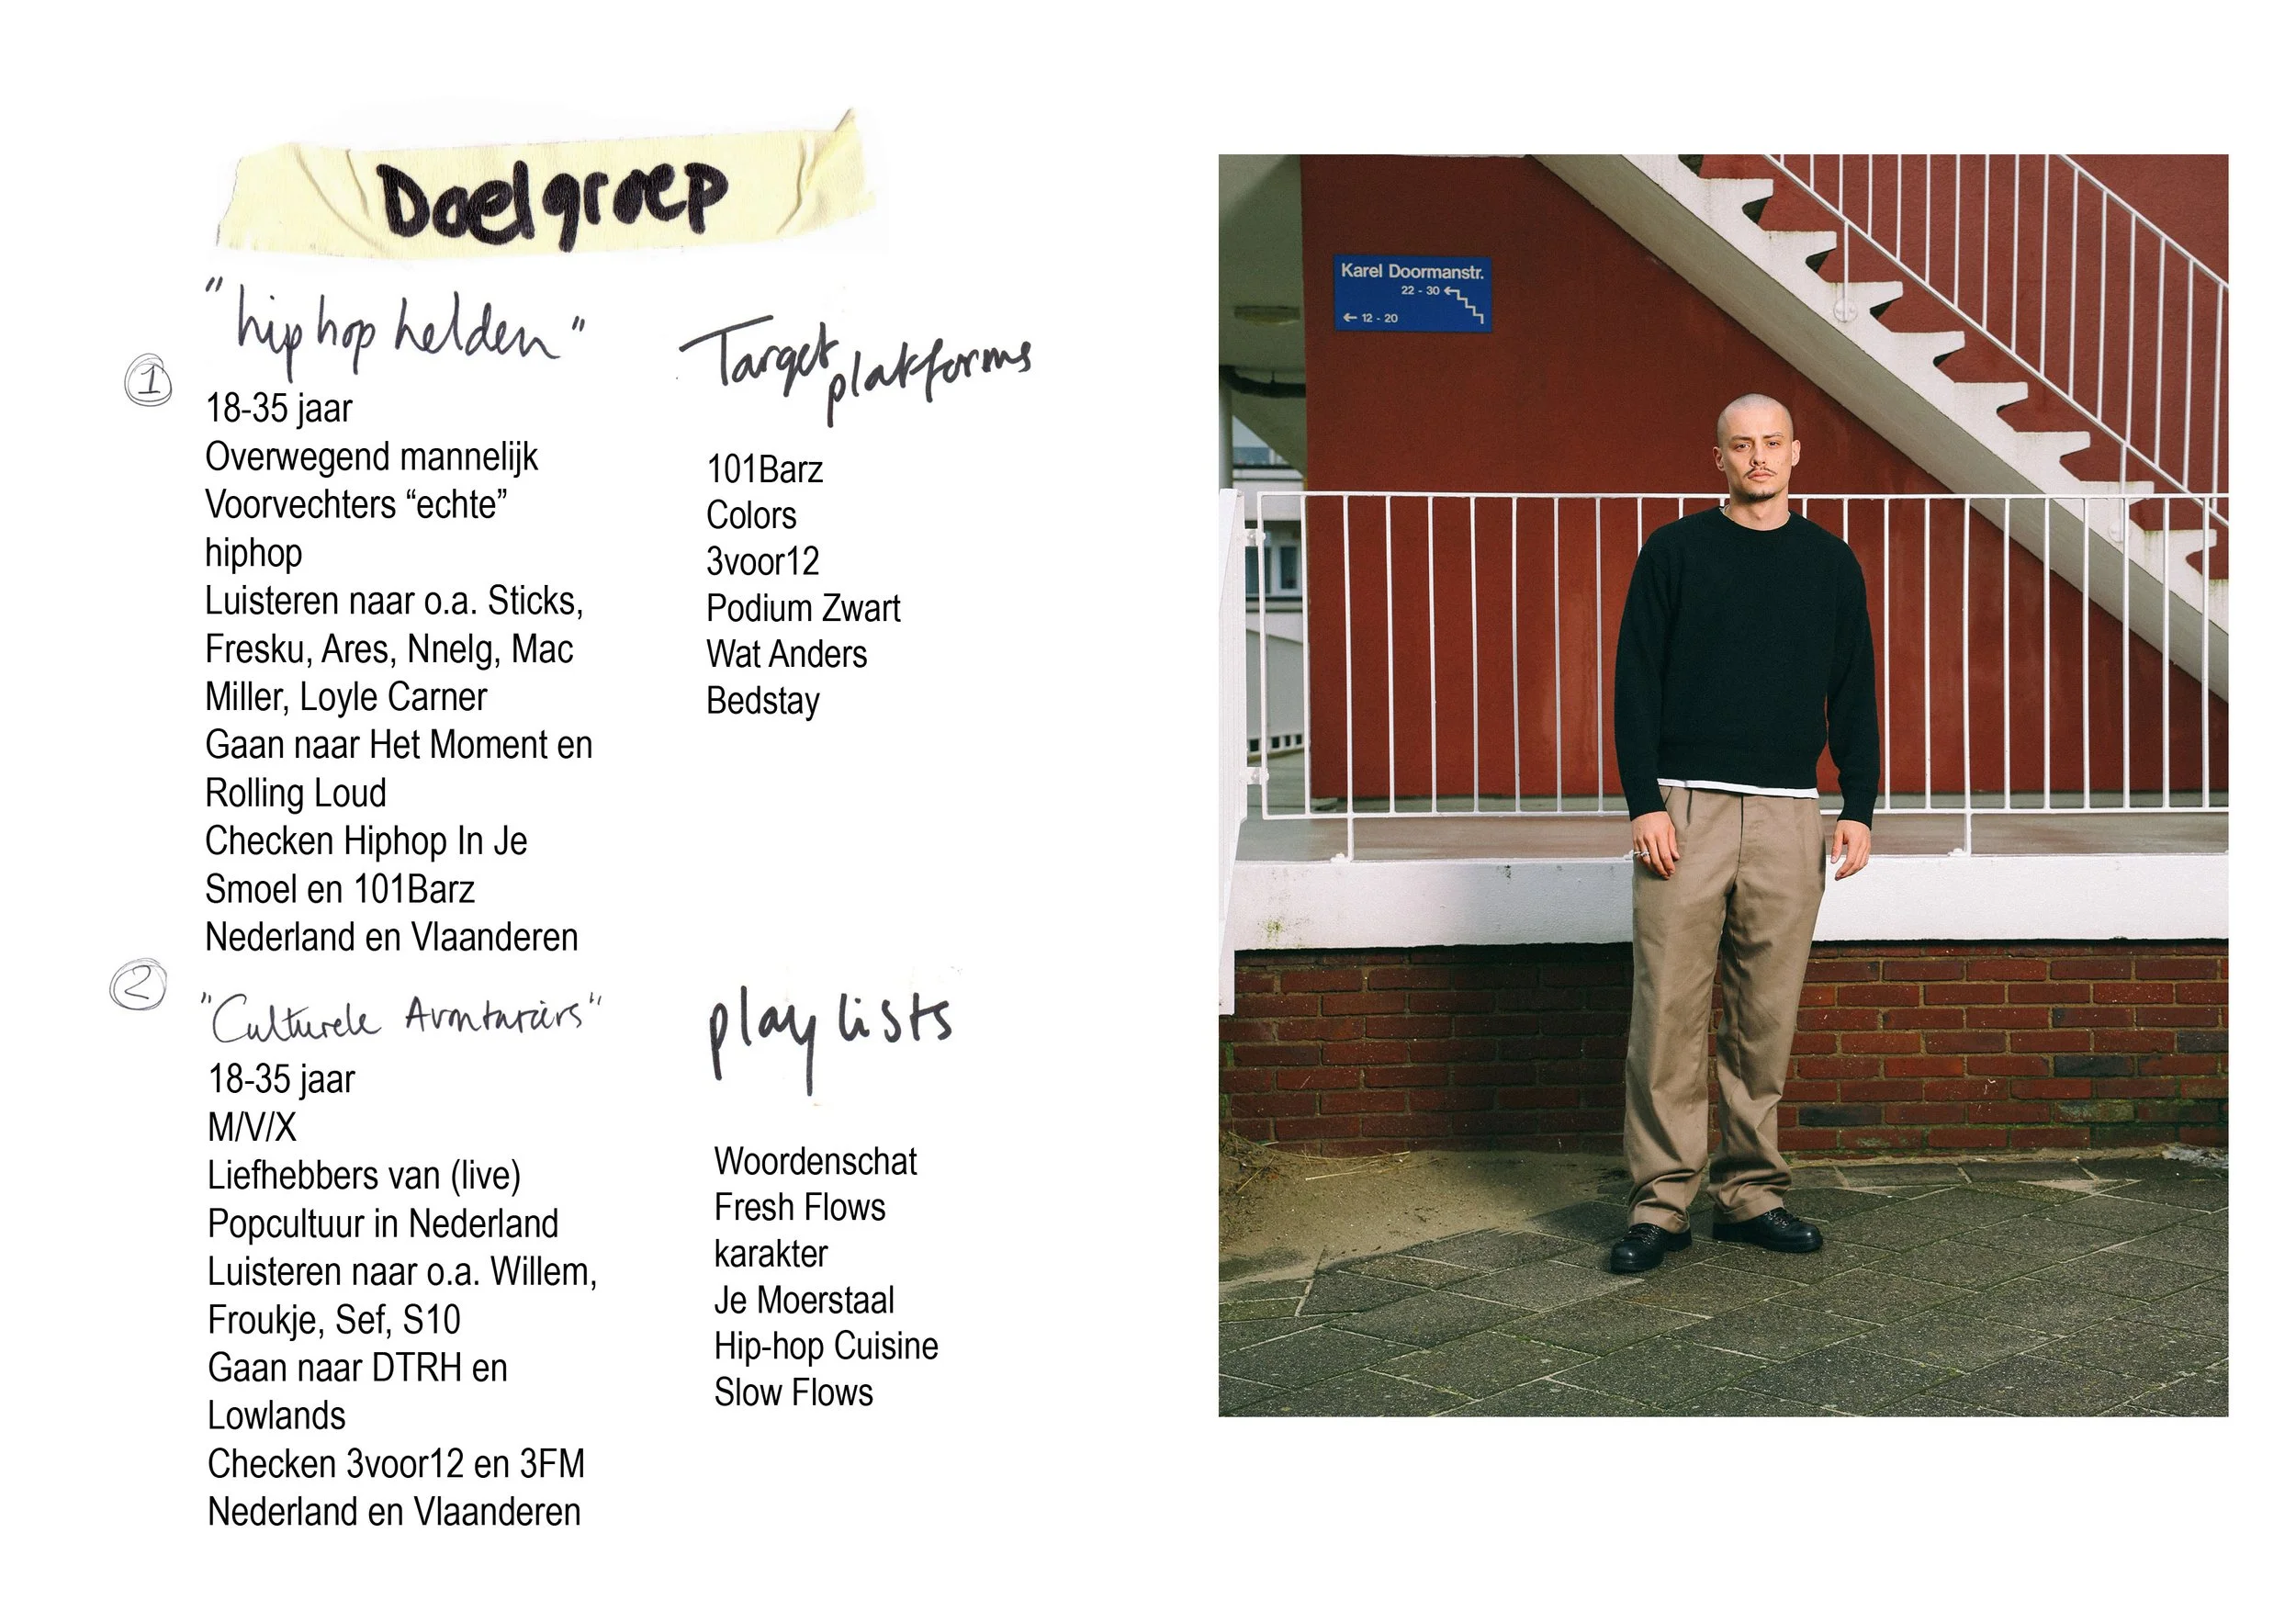 Doelgroep
"hiphop helden"
1
18-35 jaar
Overwegend mannelijk
Voorvechters “echte”
hiphop
Luisteren naar o.a. Sticks,
Fresku, Ares, Nnelg, Mac
Miller, Loyle Carner
Gaan naar Het Moment en
Rolling Loud
Checken Hiphop In Je
Smoel en 101Barz
Nederland en Vlaanderen
2
"Culturele Avonturiers"
18-35 jaar
M/V/X
Liefhebbers van (live)
Popcultuur in Nederland
Luisteren naar o.a. Willem,
Froukje, Sef, S10
Gaan naar DTRH en
Lowlands
Checken 3voor12 en 3FM
Nederland en Vlaanderen
Target
platforms
101Barz
Colors
3voor12
Podium Zwart
Wat Anders
Bedstay
playlists
Woordenschat
Fresh Flows
karakter
Je Moerstaal
Hip-hop Cuisine
Slow Flows
Karel Doormanstr.
22 - 30 ←
← 12 - 20